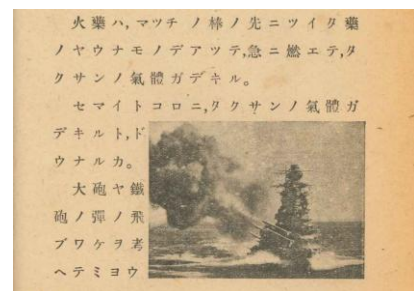 火藥ハ,マツチノ棒ノ先ニツイタ藥
ノヤウナモノデアツテ,急ニ燃エテ,タ
クサンノ氣體ガデキル。
セマイトコロニ,タクサンノ氣體ガ
デキルト,ド
ウナルカ。
大砲ヤ鐵
砲ノ彈ノ飛
ブワケヲ考
ヘテミヨウ